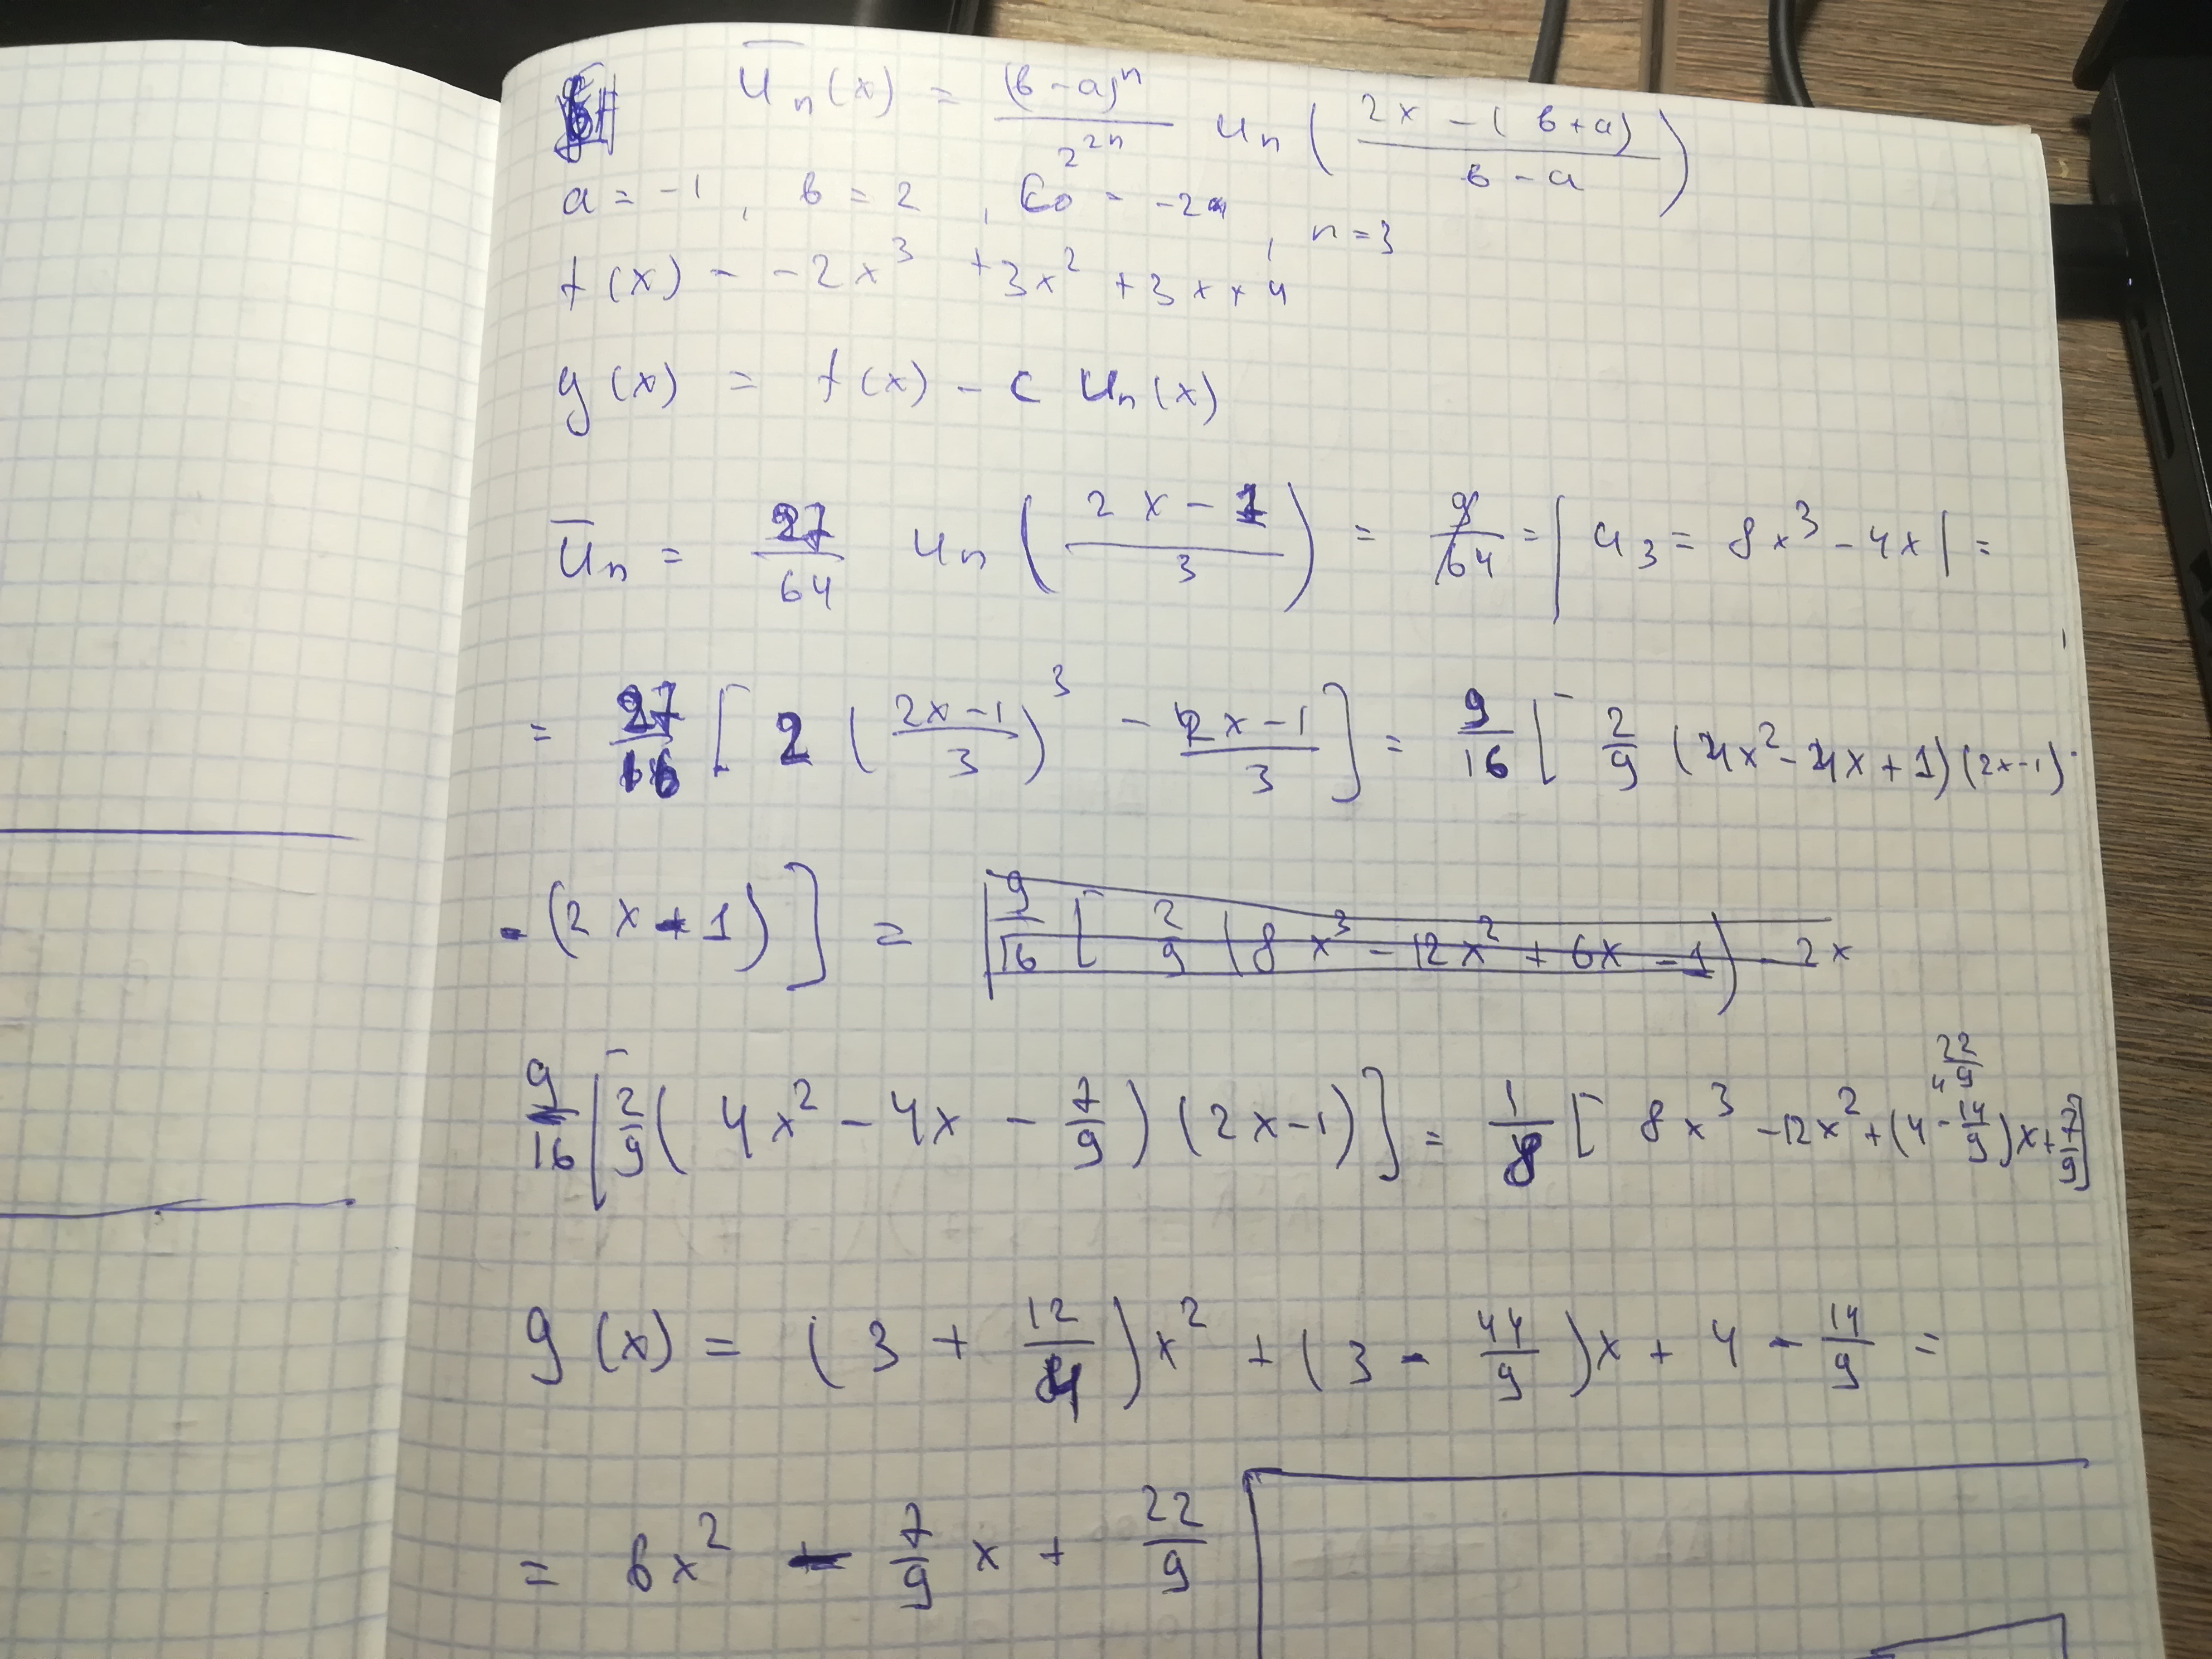 ū_n(x) = (b-a)^n / 2^{2n} u_n( (2x-(b+a)) / (b-a) )
a = -1, b = 2, C_0 = -2, n=3
f(x) = -2x^3 + 3x^2 + 3x + 4
g(x) = f(x) - C u_n(x)
ū_n = 27/64 u_n( (2x-1)/3 ) = 9/64 = | u_3 = 8x^3 - 4x | =
= 27/16 [ 2 ( (2x-1)/3 )^3 - (2x-1)/3 ] = 9/16 [ 2/9 (4x^2 - 4x + 1)(2x-1) -
- (2x-1) ] = 9/16 [ 2/9 (8x^3 - 12x^2 + 6x - 1) - 2x
9/16 [ 2/9 ( 4x^2 - 4x - 7/9 ) (2x-1) ] = 1/8 [ 8x^3 - 12x^2 + (4 - 14/9)x + 7/9 ]
g(x) = (3 + 12/4)x^2 + (3 - 44/9)x + 4 - 14/9 =
= 6x^2 - 7/9 x + 22/9